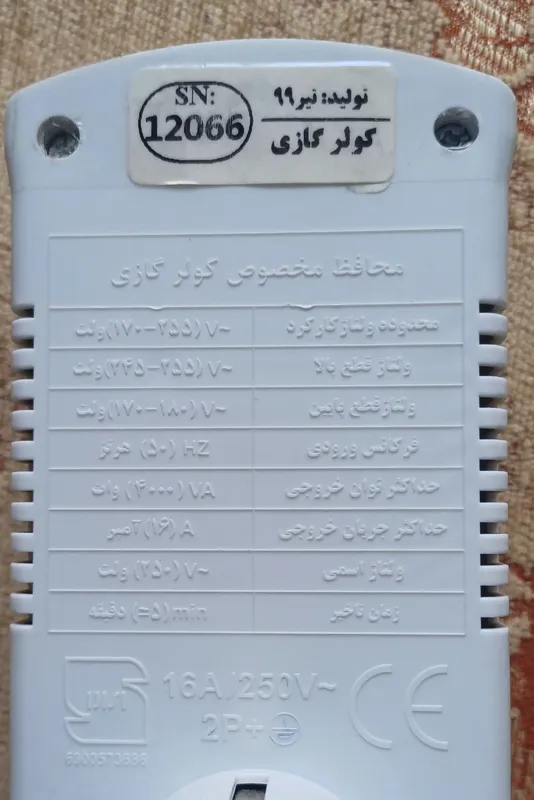 SN:
12066
تولید: تیر ۹۹
کولر گازی
محافظ مخصوص کولر گازی
محدوده ولتاژ کارکرد ~V (۱۷۰-۲۵۵) ولت
ولتاژ قطع بالا ~V (۲۴۵-۲۵۵) ولت
ولتاژ قطع پایین ~V (۱۷۰-۱۸۰) ولت
فرکانس ورودی HZ (۵۰) هرتز
حداکثر توان خروجی VA (۴۰۰۰) وات
حداکثر جریان خروجی A (۱۶) آمپر
ولتاژ اسمی ~V (۲۵۰) ولت
زمان تاخیر min (۵=) دقیقه
16A/250V~
2P+
CE